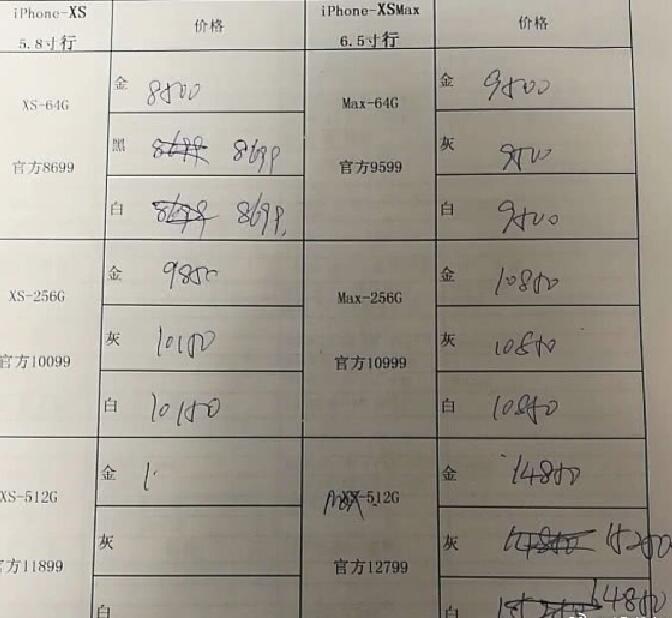 iPhone-XS 价格 iPhone-XSMax 价格
5.8寸行 6.5寸行
XS-64G 官方8699 Max-64G 官方9599
金 8500 金 9500
黑 8699 灰 9500
白 8699 白 9500
XS-256G 官方10099 Max-256G 官方10999
金 9850 金 10850
灰 10150 灰 10850
白 10150 白 10850
XS-512G 官方11899 512G 官方12799
金 金 14850
灰 灰 15200
白 白 14850